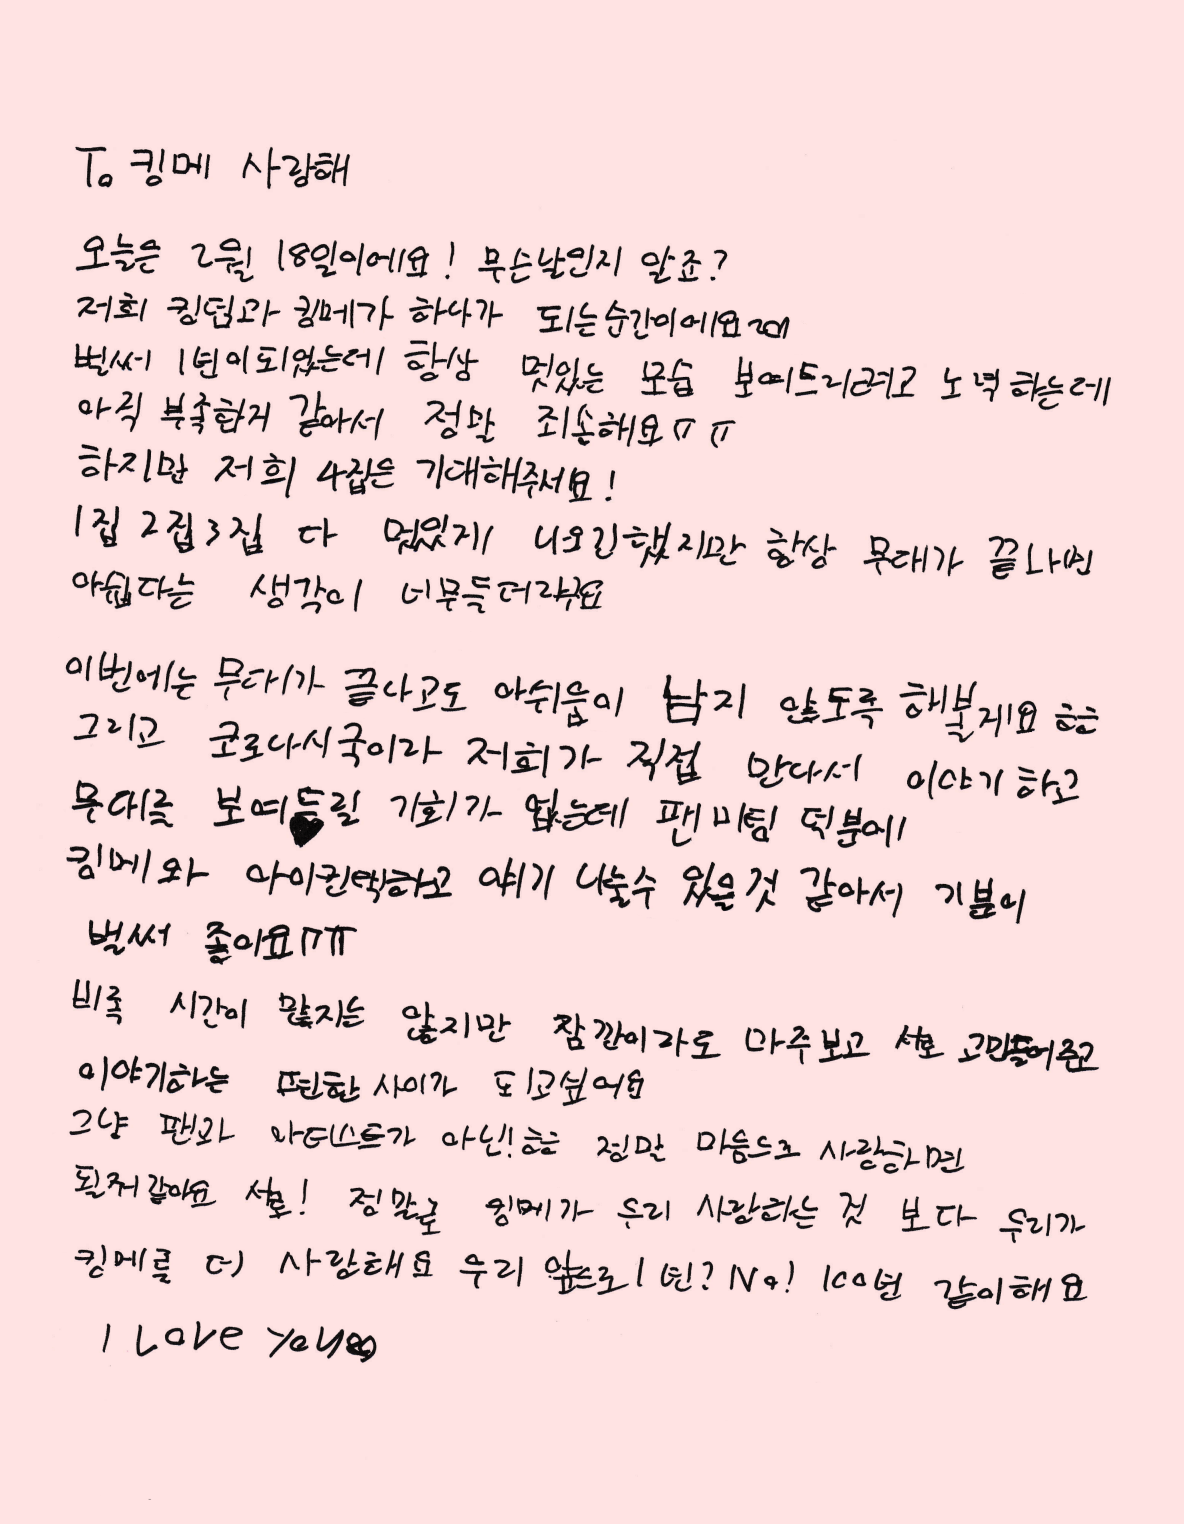 To 킹메 사랑해
오늘은 2월 18일이에요! 무슨날인지 알죠?
저희 킹덤과 킹메가 하나가 되는순간이에요
벌써 1년이되었는데 항상 멋있는 모습 보여드리려고 노력하는데
아직 부족한거 같아서 정말 죄송해요ㅠㅠ
하지만 저희 4집은 기대해주세요!
1집 2집 3집 다 멋있게 나오긴했지만 항상 무대가 끝나면
아쉽다는 생각이 너무들더라구요
이번에는 무대가 끝나고도 아쉬움이 남지 않도록 해볼게요 ㅎㅎ
그리고 코로나시국이라 저희가 직접 만나서 이야기하고
무대를 보여드릴 기회가 없는데 팬미팅 덕분에
킹메와 아이컨택하고 얘기 나눌수 있을것 같아서 기분이
벌써 좋아요ㅠㅠ
비록 시간이 많지는 않지만 잠깐이라도 마주보고 서로 고민들어주고
이야기하는 편한사이가 되고싶어요
그냥 팬과 아티스트가 아닌!! ㅎㅎ 정말 마음으로 사랑하면
될거같아요 서로! 정말로 킹메가 우리 사랑하는 것 보다 우리가
킹메를 더 사랑해요 우리 앞으로 1년? No! 100년 같이해요
I Love You